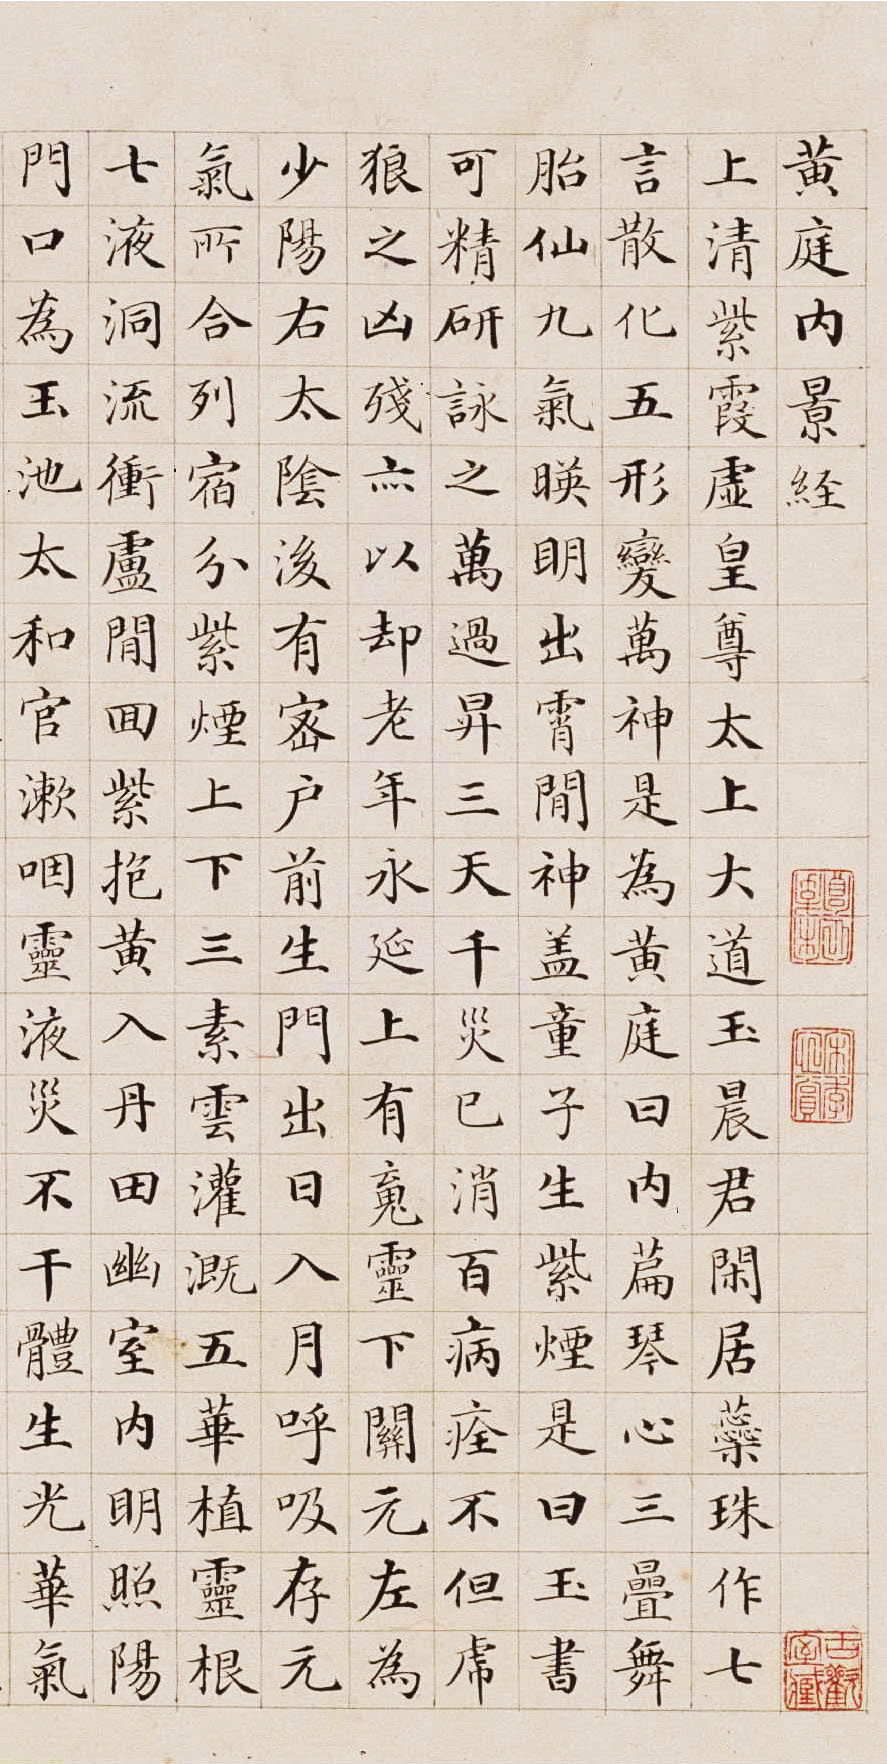 黄庭内景経
上清紫霞虚皇尊太上大道玉晨君閑居蘂珠作七
言散化五形變萬神是為黄庭曰内篇琴心三疊舞
胎仙九氣暎明出霄間神盖童子生紫煙是曰玉書
可精研詠之萬過昇三天千災已消百病痊不但虎
狼之凶殘亦以却老年永延上有䰟靈下關元左為
少陽右太陰後有密户前生門出日入月呼吸存元
氣所合列宿分紫煙上下三素雲灌溉五華植靈根
七液洞流衝盧間回紫抱黄入丹田幽室内明照陽
門口為玉池太和官漱咽靈液災不干體生光華氣